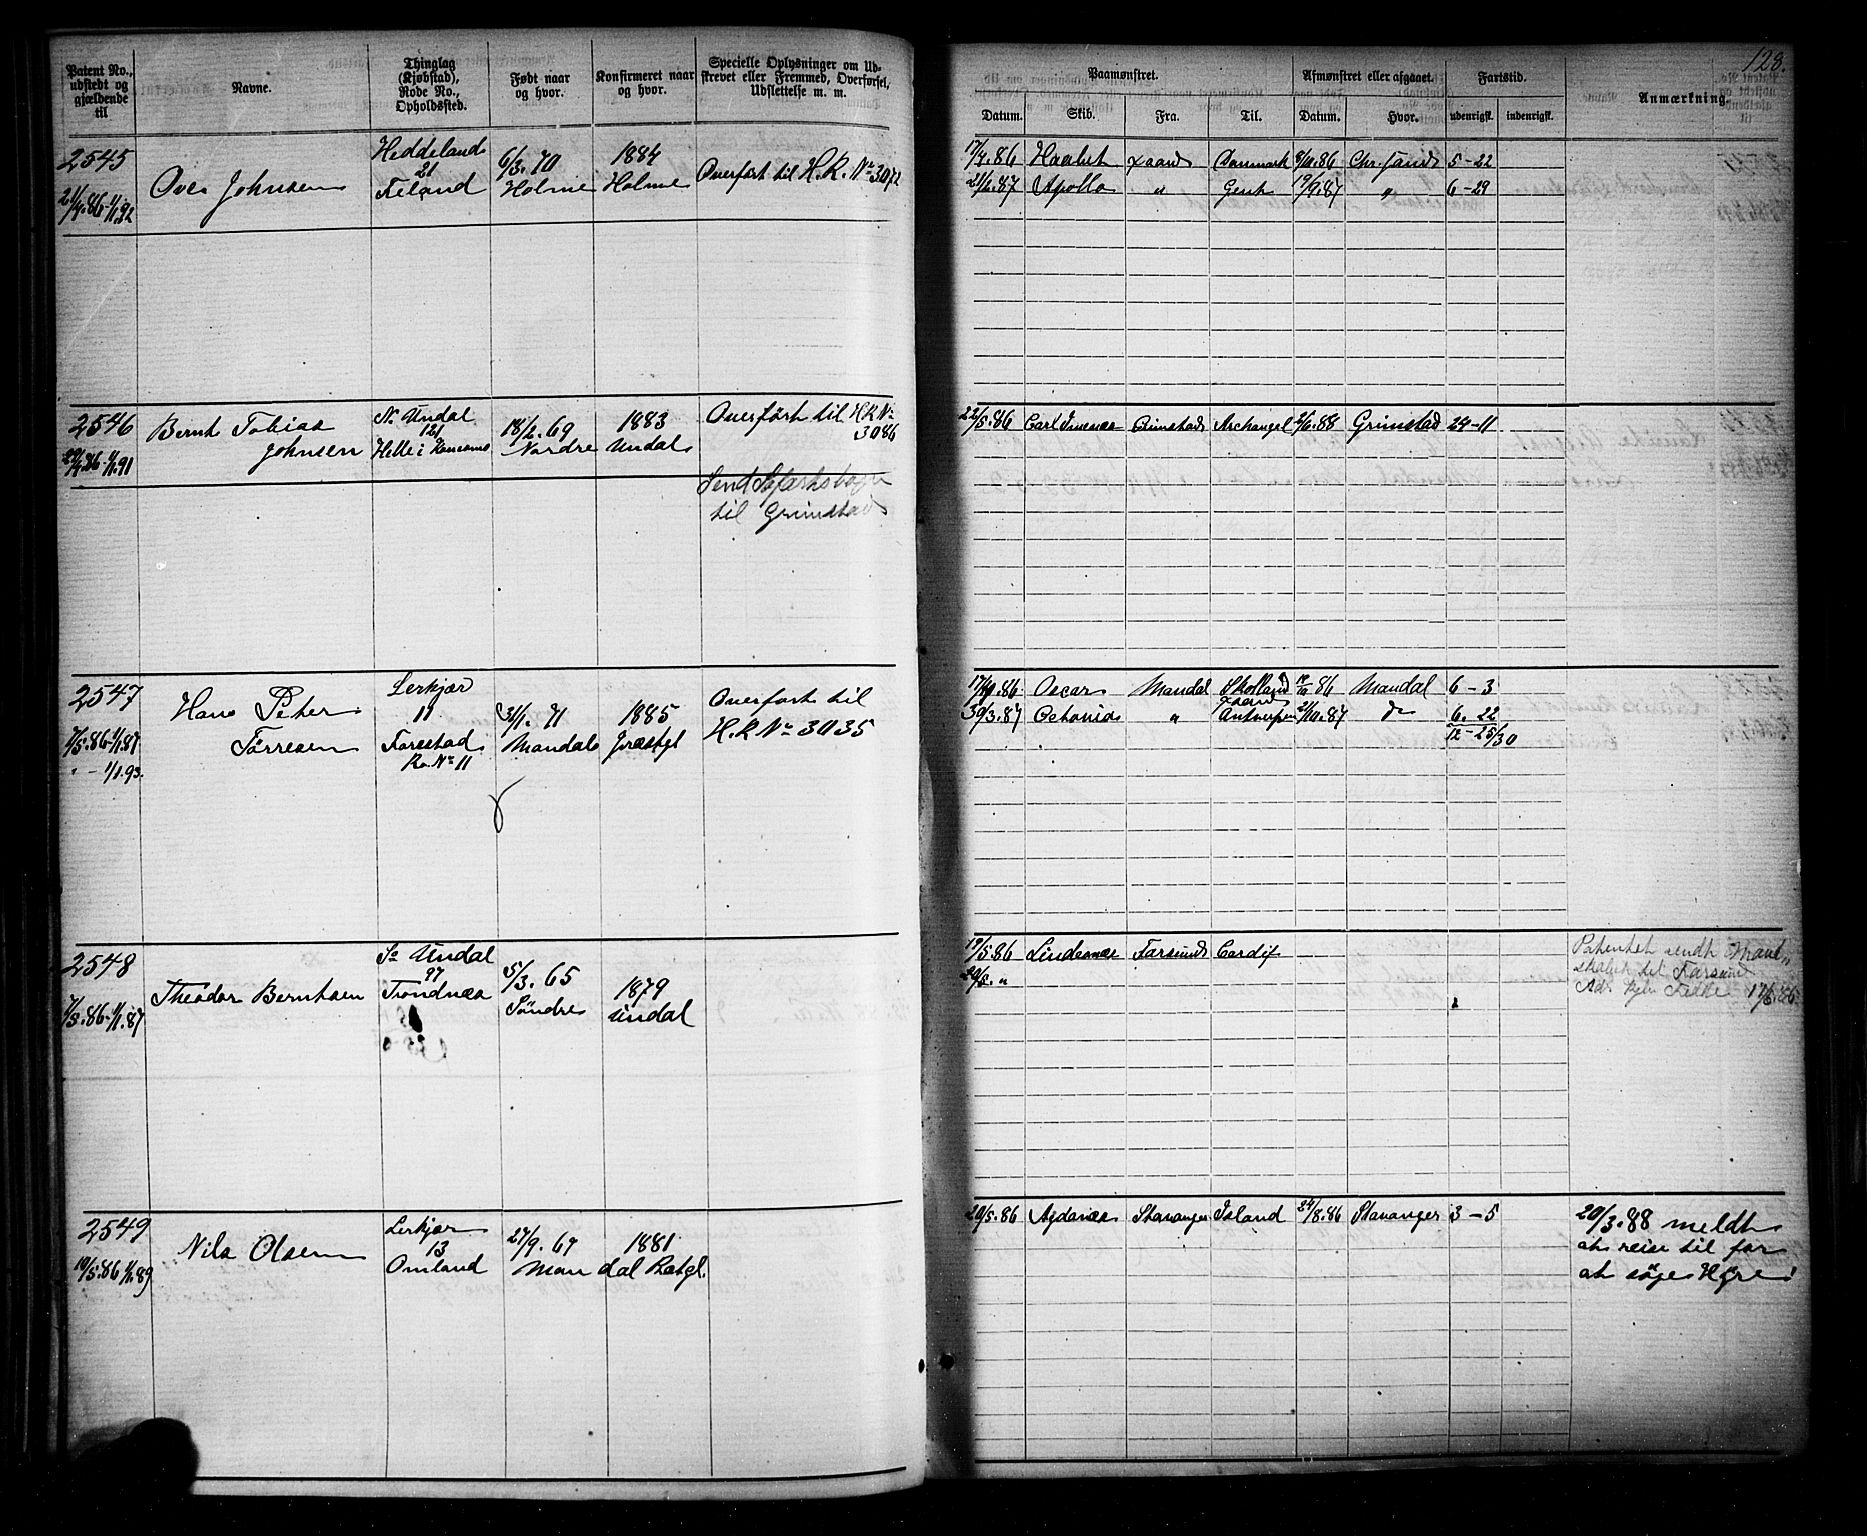 128.
Patent No., udstedt og gjældende til
Navne.
Thinglag (Kjøbstad), Rode No., Opholdssted.
Født naar og hvor.
Konfirmeret naar og hvor.
Specielle Oplysninger om Udskrevet eller Fremmed, Overførsel, Udslettelse m. m.
Paamønstret.
Datum. Skib. Fra. Til.
Afmønstret eller afgaaet.
Datum. Hvor.
Fartstid.
udenrigsk. indenrigsk.
Anmærkning.
2545
21/4.86-1/1.92
Ove Johnsen
Heddeland
21
Feland
6/3.70
Holme
1884
Holme
Overført til H.R. No 3072
17/4.86 Haabet Danmark 8/10.86 Chr.sand 5-22
21/6.87 Apollo " Genh 19/9.87 " 6-29
2546
1/1.91
Bernt Tobias
Johnsen
N. Undal
121
Helle i
18/2.69
Nordre
1883
Undal
Overført til H.R No
3086
Send
til Grimstad
22/5.86 Grimstad Archangel 2/6.88 Grimstad 24-11
2547
7/5.86-1/1.87
" - 1/1.93.
Hans Peter
Tørresen
Lerkjær
11
Farestad
Ro. No 11
31/1.71
Mandal
1885
Præstgl
Overført til
H.R No 3035
Oscar Mandal 86 Mandal 6-3
30/3.87 Octavia " Antwerpen 21/10.87 do 6-22
12-25/30
2548
7/5.86-1/1.87
Theodor Berntsen
So Undal
97
Trondnes
5/3.65
Søndre
1879
Undal
19/5.86 Lindesnæs Farsund Cardif
20/5. "
Patentet sendt
til Farsund
17/5.86
2549
10/5.86 1/1.89
Nils Olsen
Lerkjær
13
Omland
27/9.67
Man
1881
dal Præstgl.
20/5.86 Agdanæs Stavanger Island 24/8.86 Stavanger 3-5
20/3.88 meldt
at reise til
at søge Hyre!